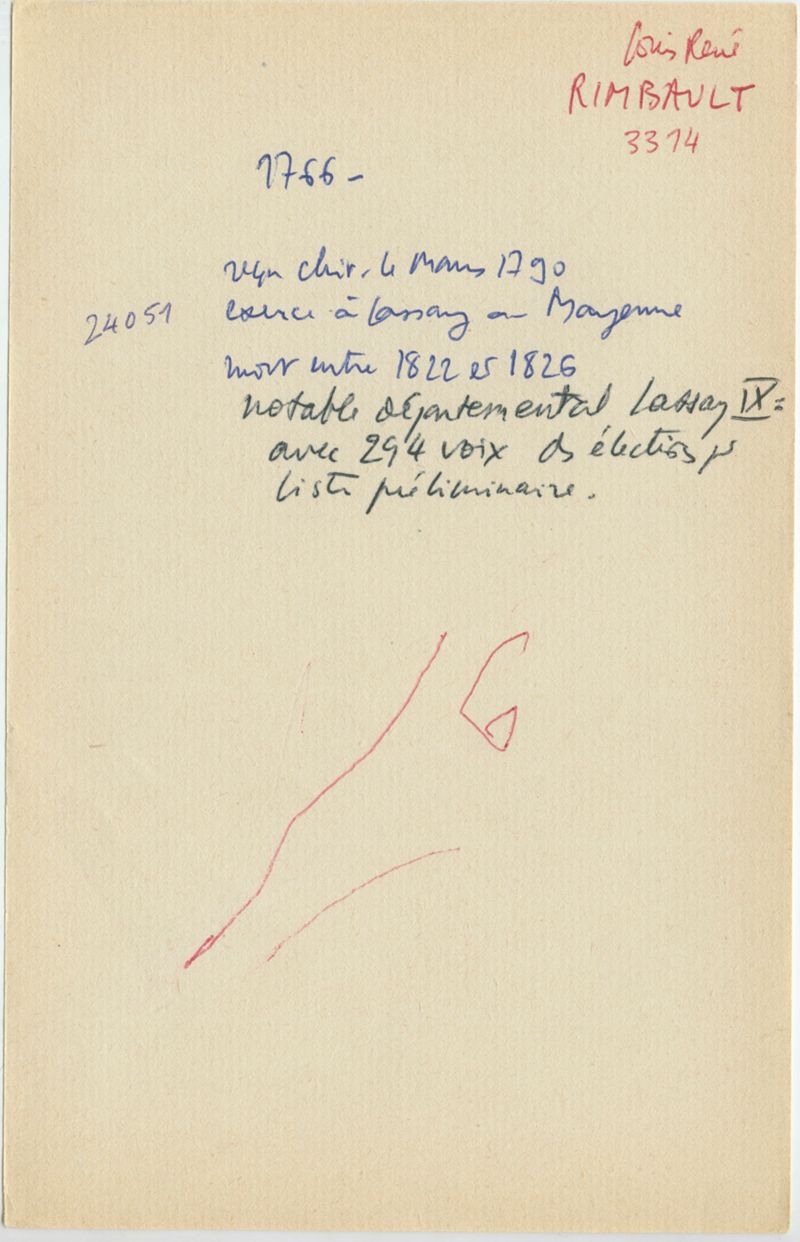 Louis René
RIMBAULT
3314
1766 –
reçu chir. le Mans 1790
24051 exerce à Lassay en Mayenne
mort entre 1822 et 1826
notable départemental Lassay IX =
avec 294 voix ds élections pr
liste préliminaire.